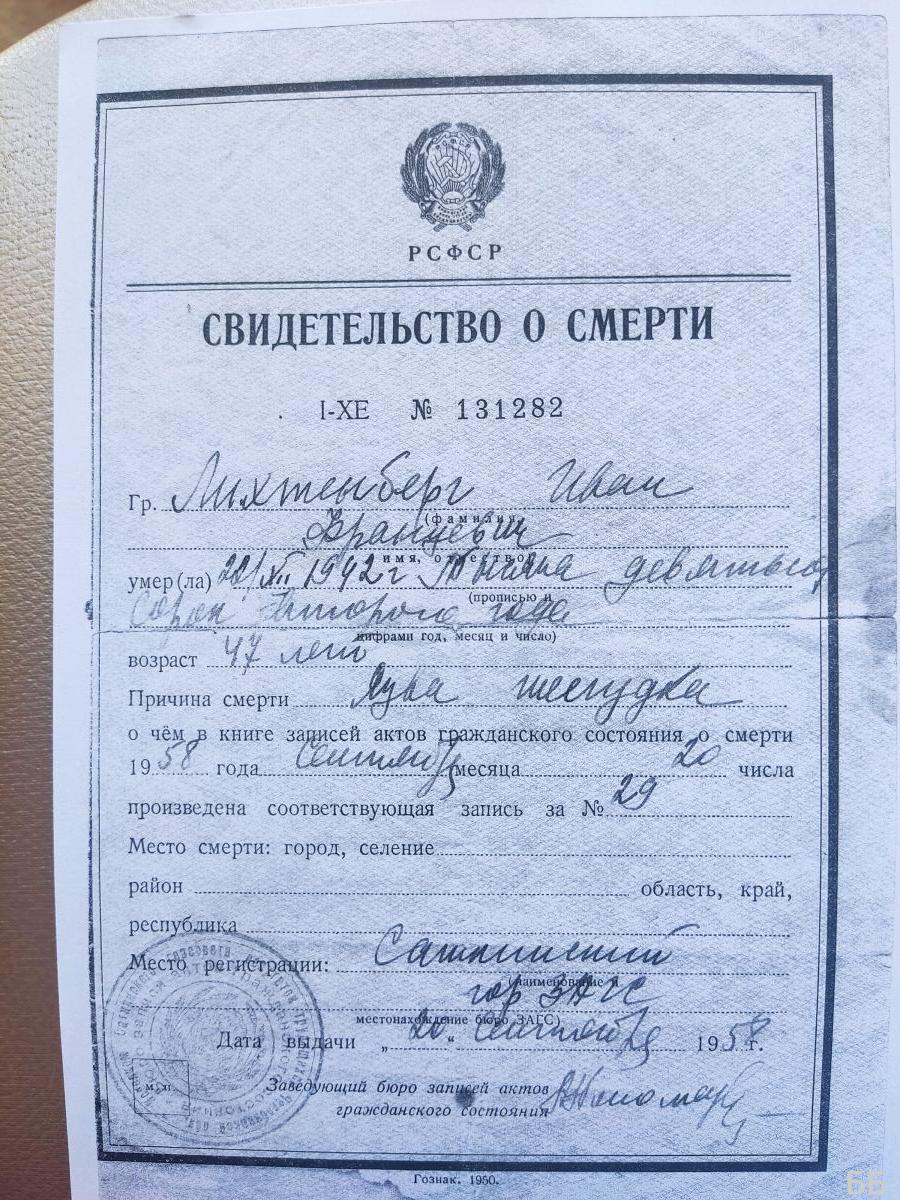 РСФСР
СВИДЕТЕЛЬСТВО О СМЕРТИ
I-ХЕ № 131282
Гр. Лихтенберг Иван
(фамилия,
Францевич
имя, отчество)
умер(ла) 22/XII 1942 г Тысяча девятьсот
(прописью и
Сорок второго года
цифрами год, месяц и число)
возраст 47 лет
Причина смерти Язва желудка
о чём в книге записей актов гражданского состояния о смерти
1958 года Сентября месяца 20 числа
произведена соответствующая запись за № 29
Место смерти: город, селение
район область, край,
республика
Место регистрации: Саткинский
(наименование и
гор ЗАГС
местонахождение бюро ЗАГС)
Дата выдачи „20“ сентября 1958 г.
М. П.
Заведующий бюро записей актов
гражданского состояния
Гознак. 1950.
ББ